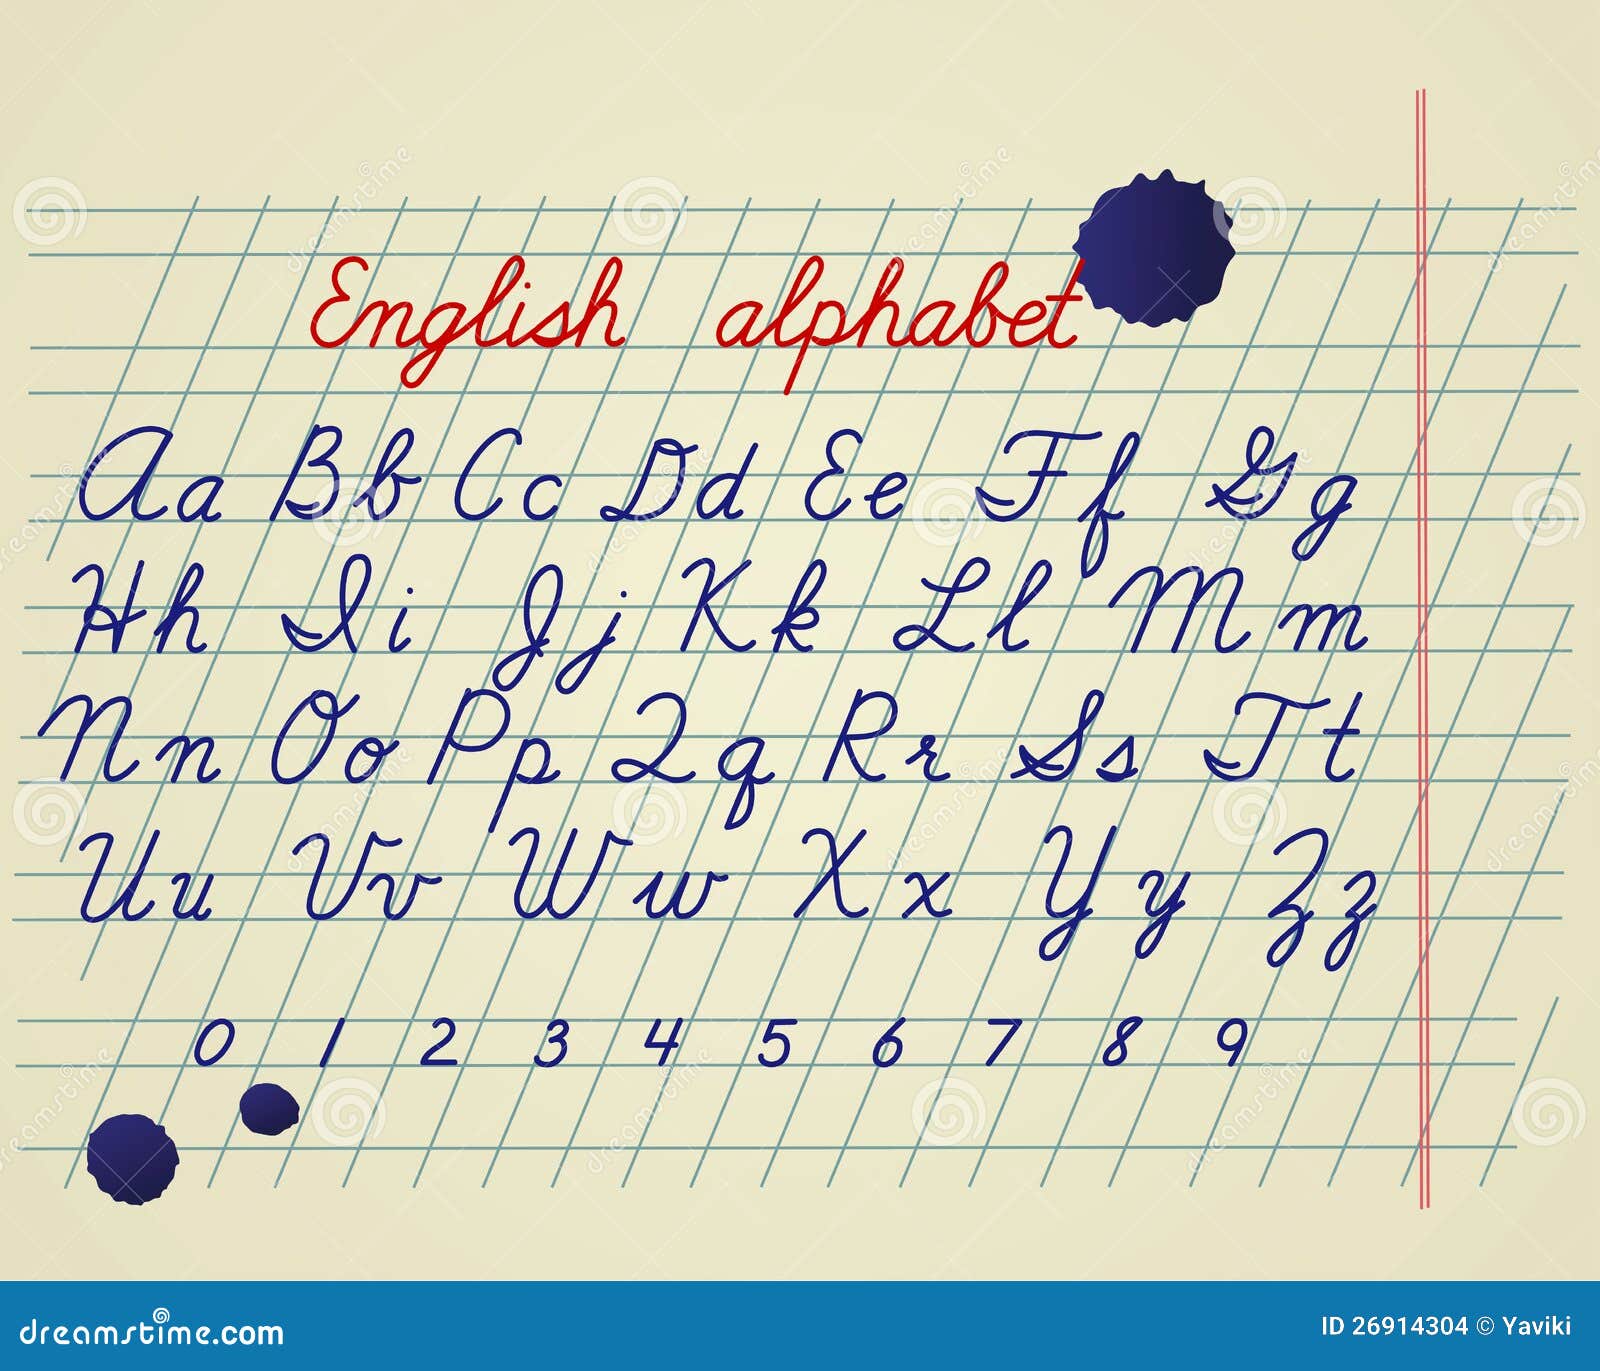 English alphabet
Aa Bb Cc Dd Ee Ff Gg
Hh Ii Jj Kk Ll Mm
Nn Oo Pp Qq Rr Ss Tt
Uu Vv Ww Xx Yy Zz
0 1 2 3 4 5 6 7 8 9
dreamstime.com
ID 26914304 © Yaviki